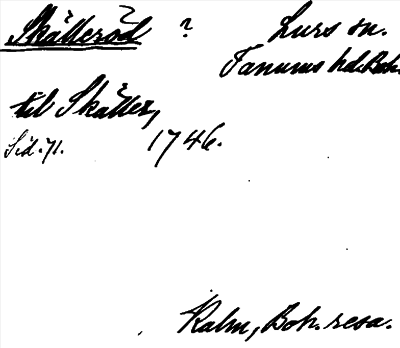 Skälleröd ? Lurs sn.
Tanums hd. Boh.
till Skäller,
Sid. 71. 1746.
Kalm, Boh. resa.